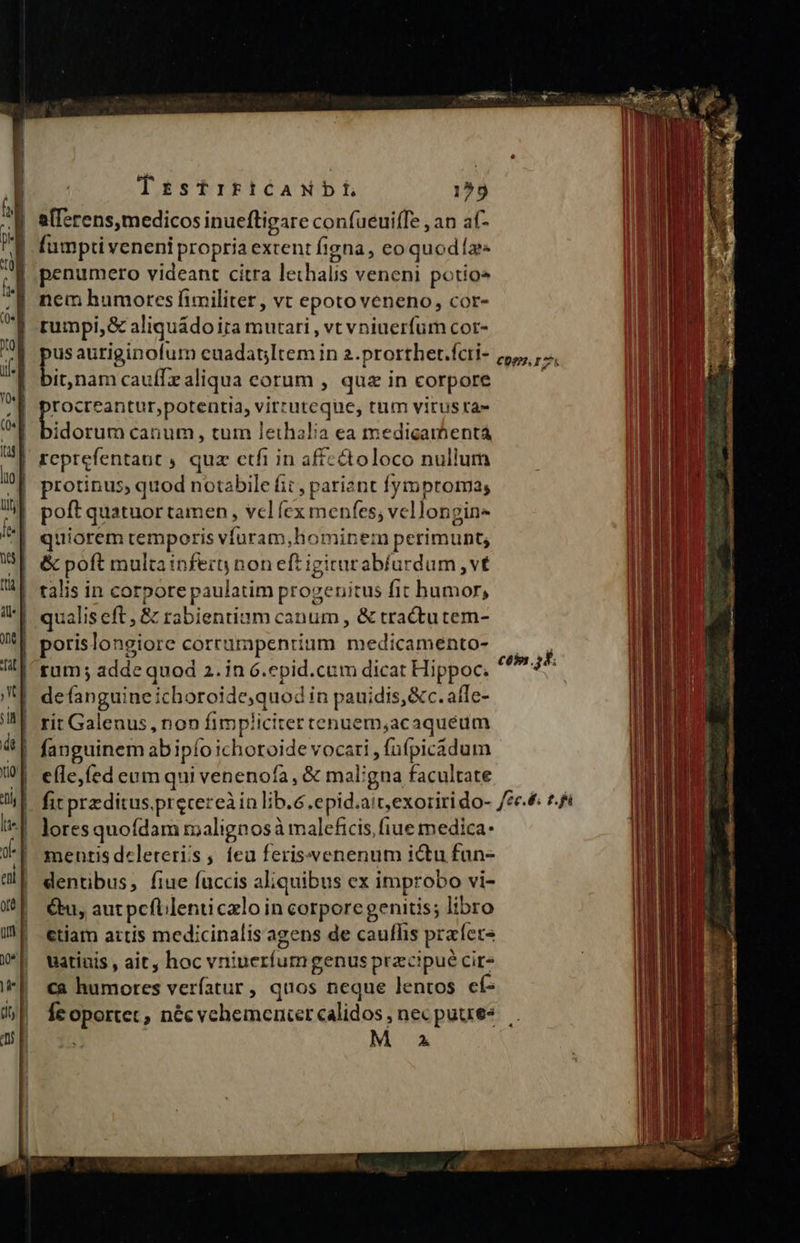 TESTIFICANDI. 179
aſſerens,medicos inueſtigare conſueuiſſe, an aſ-
ſumpti veneni propria extent ſigna, eo quod ſæ-
penumero videant citra lethalis veneni potio-
nem humores ſimiliter, vt epoto veneno, cor-
rumpi,& aliquádo ita mutari, vt vniuerſum cor-
pus auriginoſum euadat; Item in 2.prorrhet.ſcri- com.17.
bit,nam cauſſæ aliqua eorum, quæ in corpore
procreantur,potentia, virtuteque, tum virus ra-
bidorum canum, tum lethalia ea medicamenta
repreſentant, quæ etſi in affecto loco nullum
protinus, quod notabile ſit, pariant ſymptoma,
poſt quatuor tamen, vel ſex menſes, vel longin-
quiorem temporis vſuram,hominem perimunt,
& poſt multa infert; non eſt igitur abſurdum, vt
talis in corpore paulatim progenitus fit humor,
qualis eſt, & rabientium canum, & tractu tem-
poris longiore corrumpentium medicamento-
rum; adde quod 2. in 6.epid.cum dicat Hippoc. com.38.
de ſanguine ichoroide,quod in pauidis,&c. aſſe-
rit Galenus, non ſimpliciter tenuem,ac aqueum
ſanguinem ab ipſo ichoroide vocari, ſuſpicádum
eſſe,ſed eum qui venenoſa, & maligna facultate
fit præditus.præterea in lib.6.epid.ait,exoriri do- ſec.6. t.fi
lores quoſdam malignos à maleficis, ſiue medica-
mentis deleteriis, ſeu feris venenum ictu fun-
dentibus, ſiue ſuccis aliquibus ex improbo vi-
ctu, aut peſtilenti cælo in corpore genitis; libro
etiam artis medicinalis agens de cauſſis præſer-
uatiuis, ait, hoc vniuerſum genus præcipuè cir-
ca humores verſatur, quos neque lentos eſ-
ſe oportet, néc vehementer calidos, nec putres
M 2